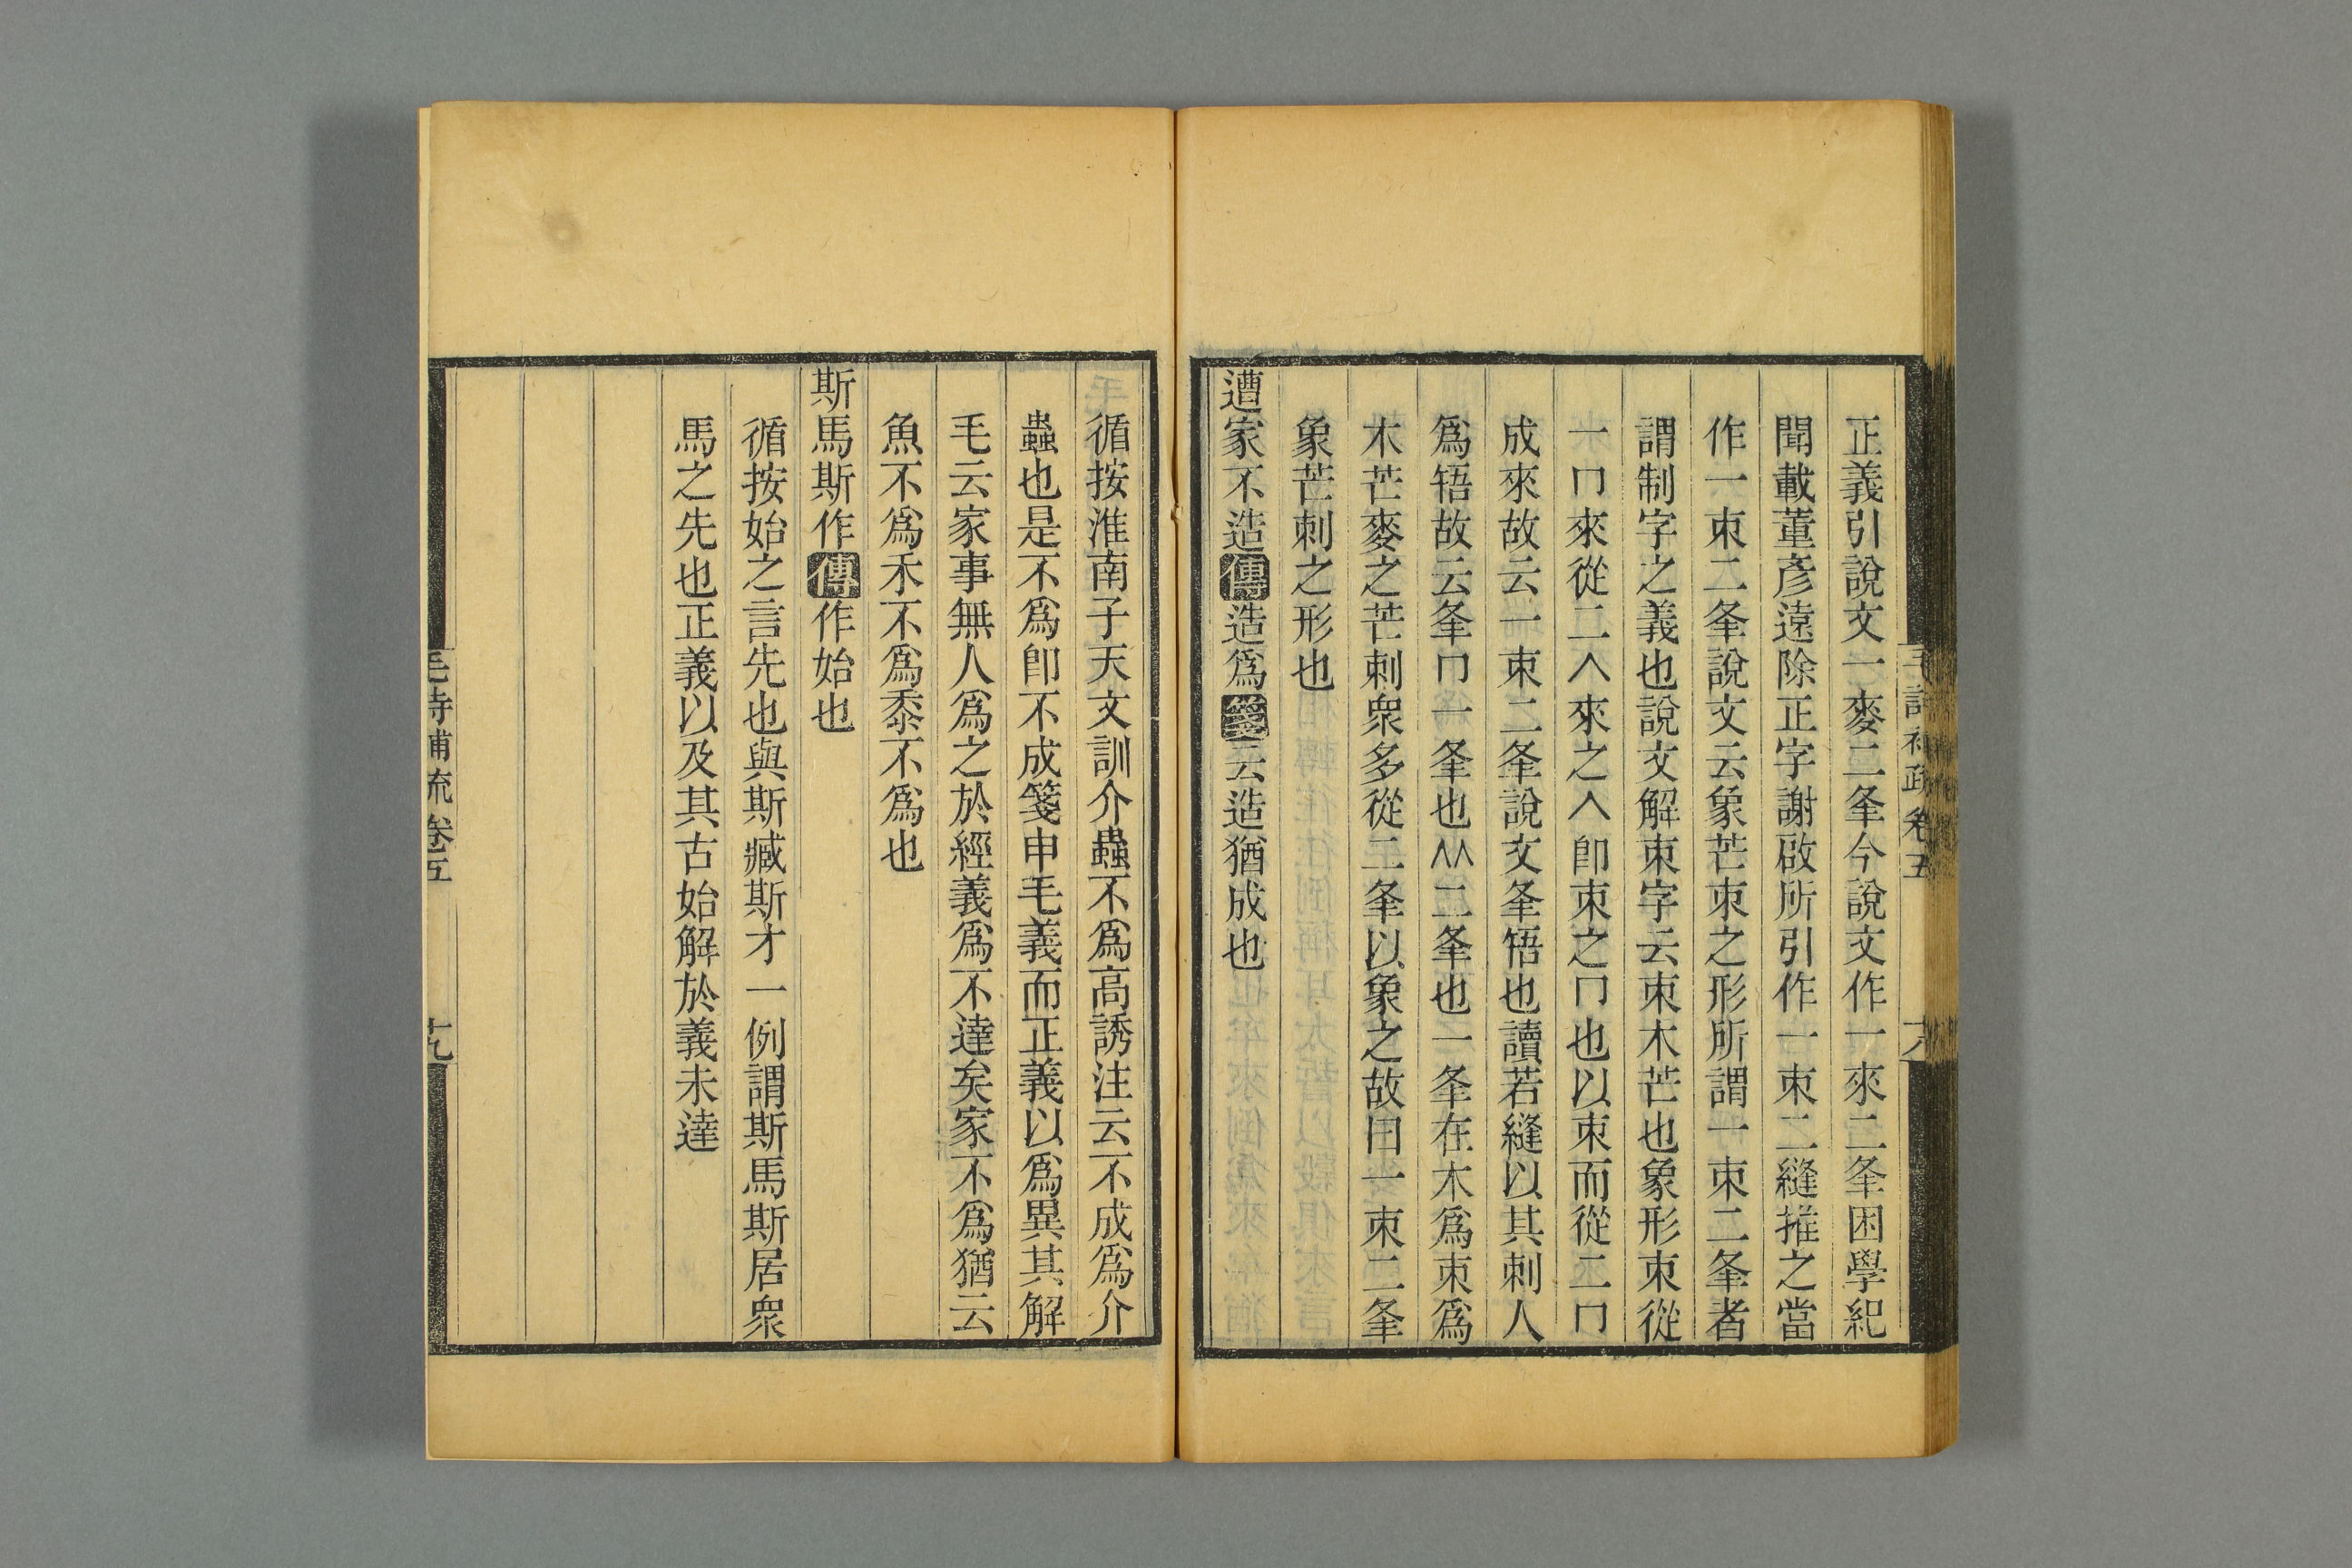 正義引說文一麥二夆今說文作一來二夆困學紀
聞載董彥遠除正字謝啟所引作一朿二縫推之當
作一朿二夆說文云象芒朿之形所謂一朿二夆者
謂制字之義也說文解朿字云朿木芒也象形朿從
一冂來從二人來之人卽朿之冂也以朿而從二冂
成來故云一朿二夆說文夆啎也讀若縫以其刺人
爲啎故云夆冂一夆也从二夆也一夆在木爲朿爲
木芒麥之芒刺衆多從二夆以象之故曰一朿二夆
象芒刺之形也
遭家不造傳造爲箋云造猶成也
毛詩補疏卷五
循按淮南子天文訓介蟲不爲高誘注云不成爲介
蟲也是不爲卽不成箋申毛義而正義以爲異其解
毛云家事無人爲之於經義爲不達矣家不爲猶云
魚不爲禾不爲黍不爲也
斯馬斯作傳作始也
循按始之言先也與斯臧斯才一例謂斯馬斯居衆
馬之先也正義以及其古始解於義未達
毛詩補疏卷五
十九